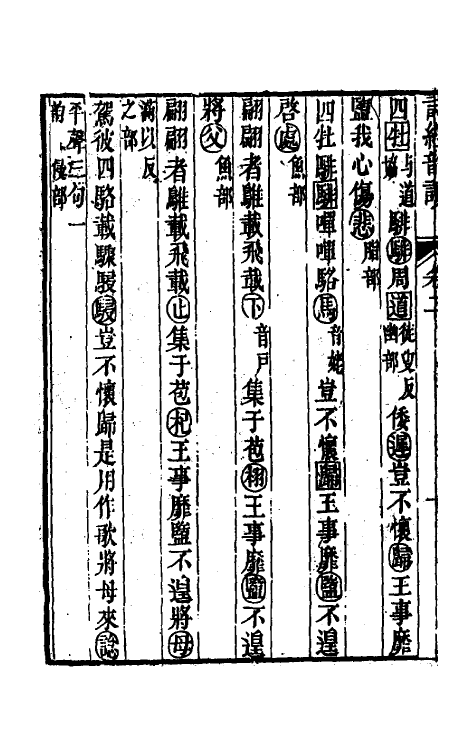 詩經韻讀 卷二 一
四牡與道協騑騑周道徒叟反幽部倭遲豈不懷歸王事靡
盬我心傷悲脂部
四牡騑騑嘽嘽駱馬音姥豈不懷歸王事靡盬不遑
啓處魚部
翩翩者鵻載飛載下音戶集于苞栩王事靡盬不遑
將父魚部
翩翩者鵻載飛載止集于苞杞王事靡盬不遑將母
滿以反之部
駕彼四駱載驟駸駸豈不懷歸是用作歌將母來諗
平聲三句一韵侵部